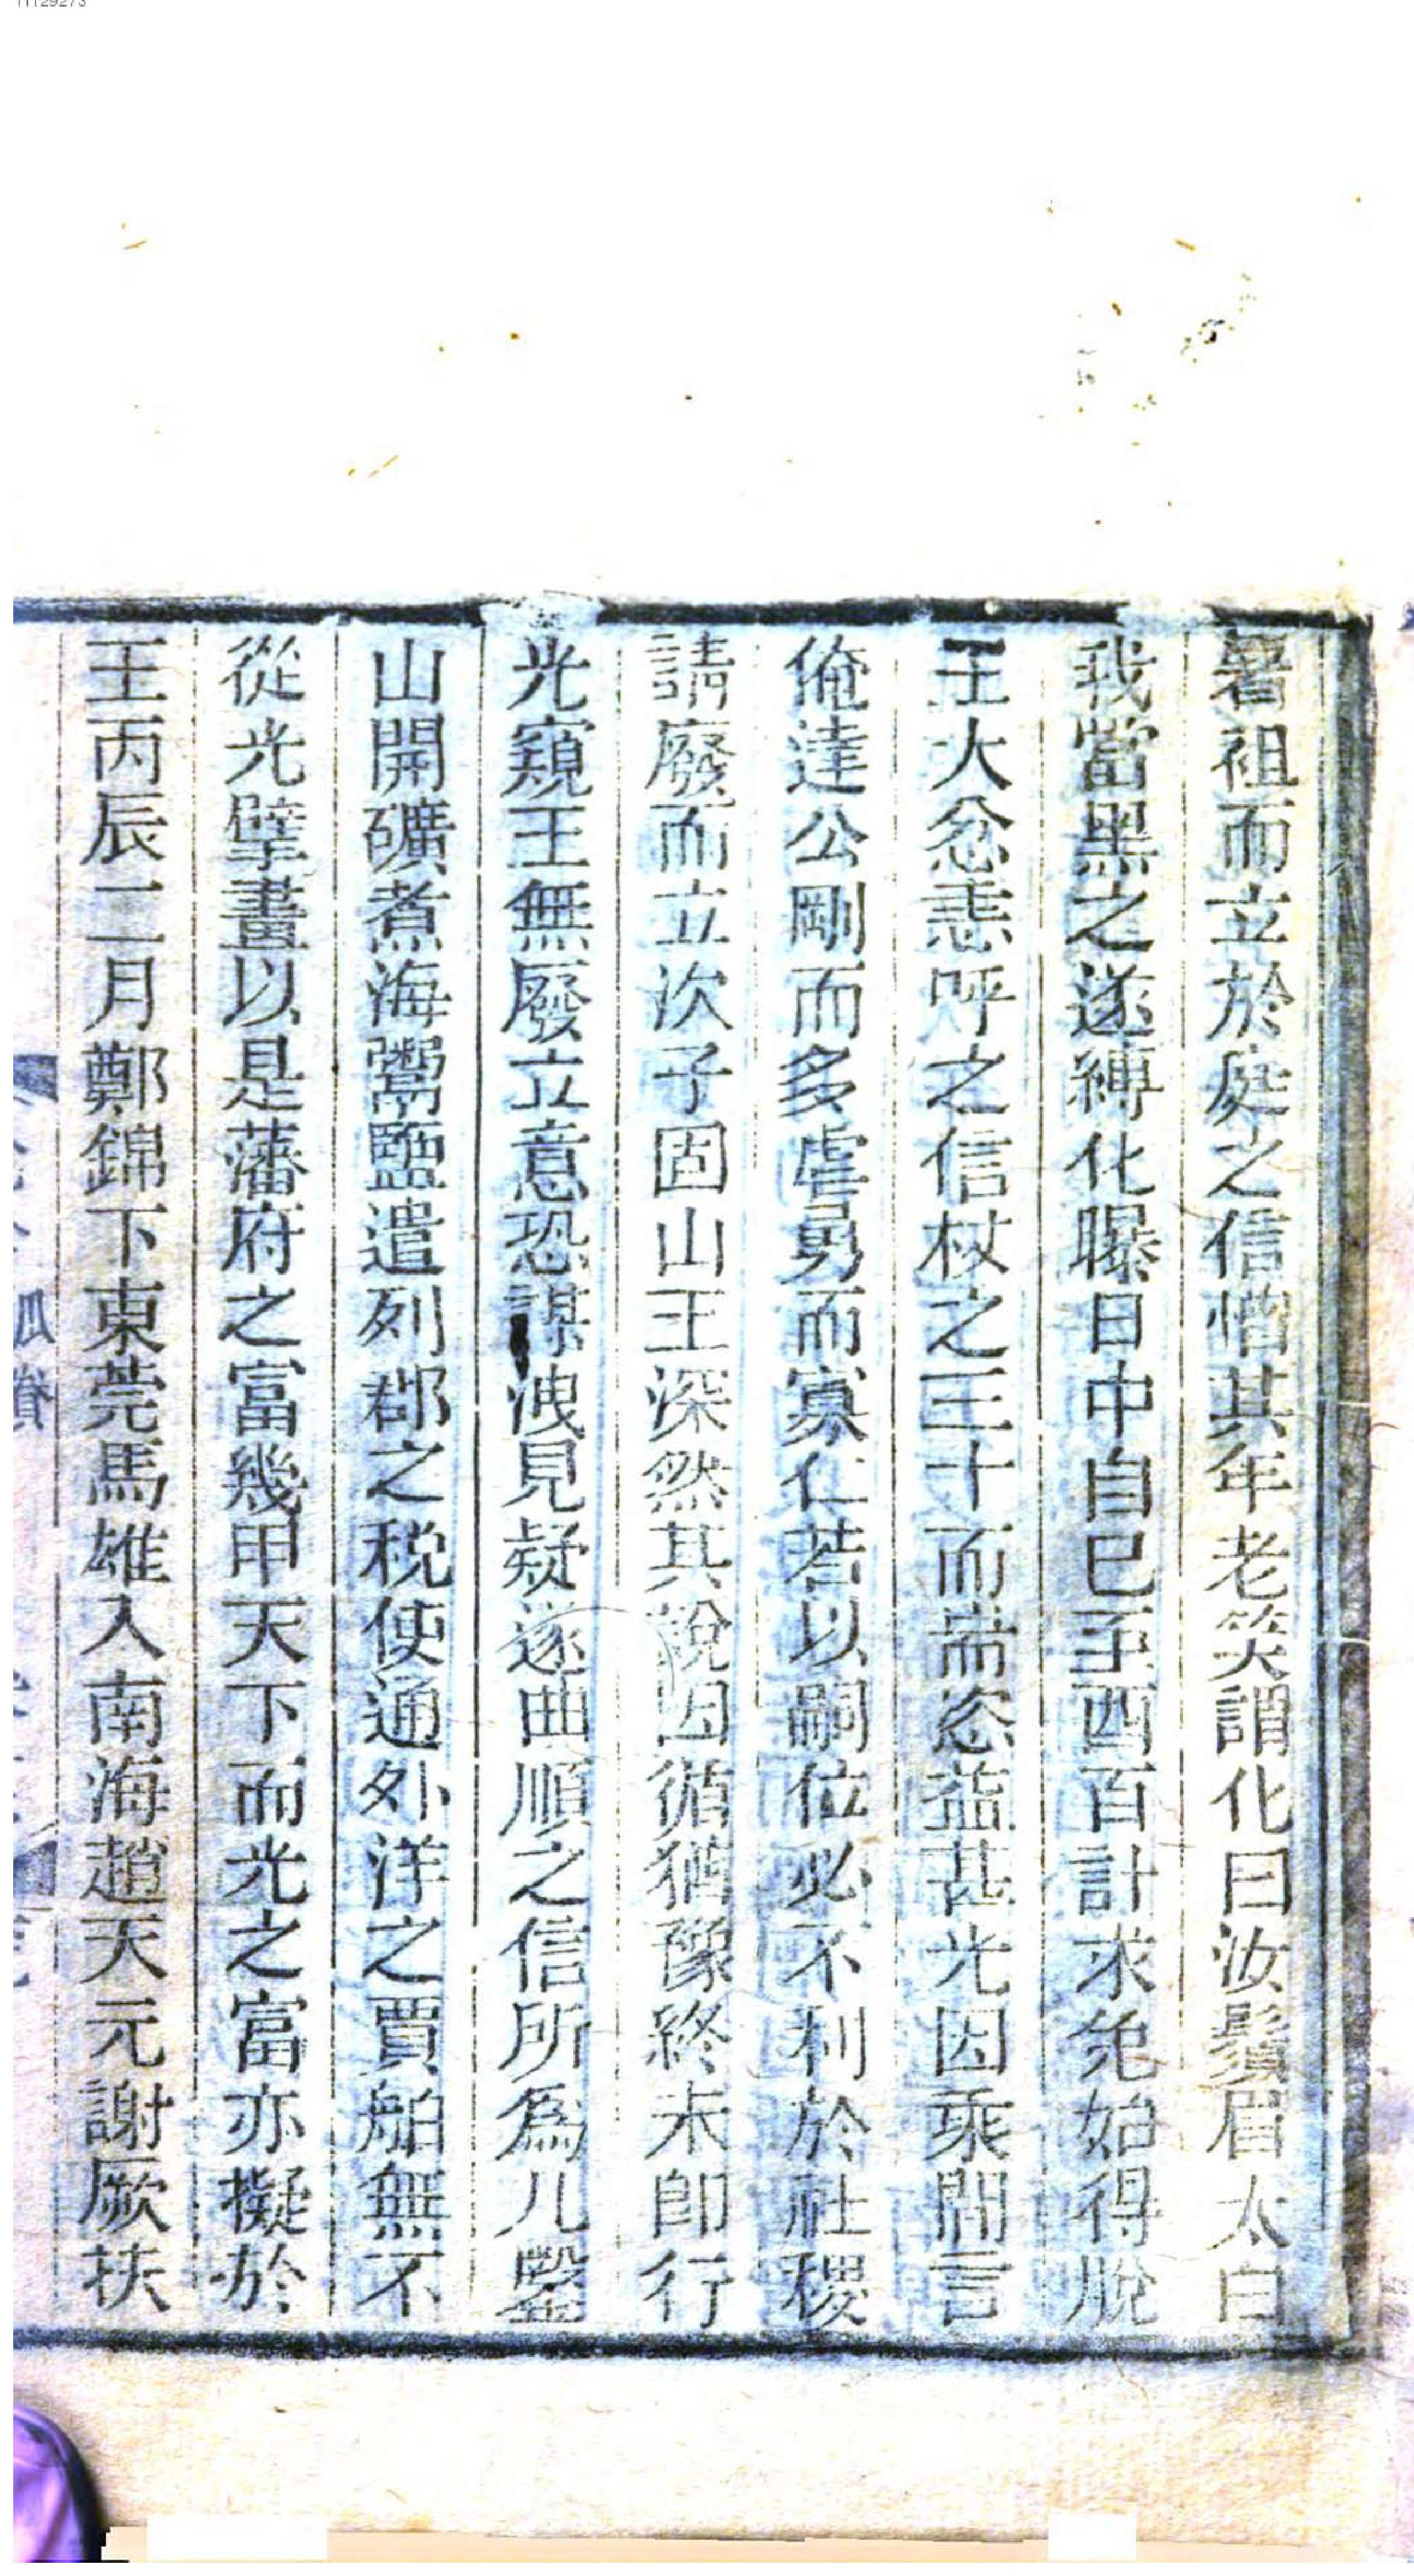 暑袒而立於庭之信憎其年老笑謂化曰汝鬚眉太白
我當黑之遂縛化曝日中自巳至酉百計求免始得脫
王大忿恚呼之信杖之三十而耑恣益甚光因乘間言
俺達公剛而多虐勇而寡仁若以嗣位必不利於社稷
請廢而立次子固山王深然其說因循猶豫終未卽行
光窺王無廢立意恐謀洩見疑遂曲順之信所爲凡鑿
山開礦煮海鬻鹽遣列郡之稅使通外洋之賈舶無不
從光擘畫以是藩府之富幾甲天下而光之富亦擬於
王丙辰二月鄭錦下東莞馬雄入南海趙天元謝厥扶